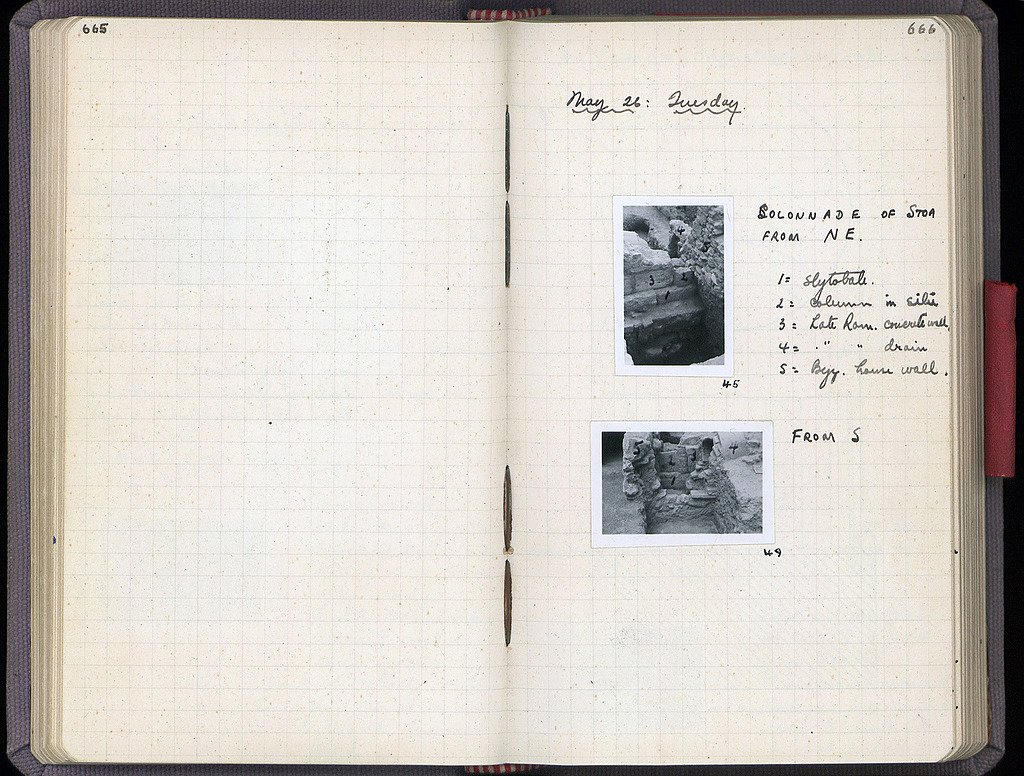 665
666
May 26: Tuesday.
COLONNADE OF STOA
FROM NE.
1= Stytobate.
2= Column in situ
3= Late Rom. concrete wall,
4= " " drain
5= Byz. house wall.
4 5
3 2
1
45
FROM S
5 2 3 4
1
49